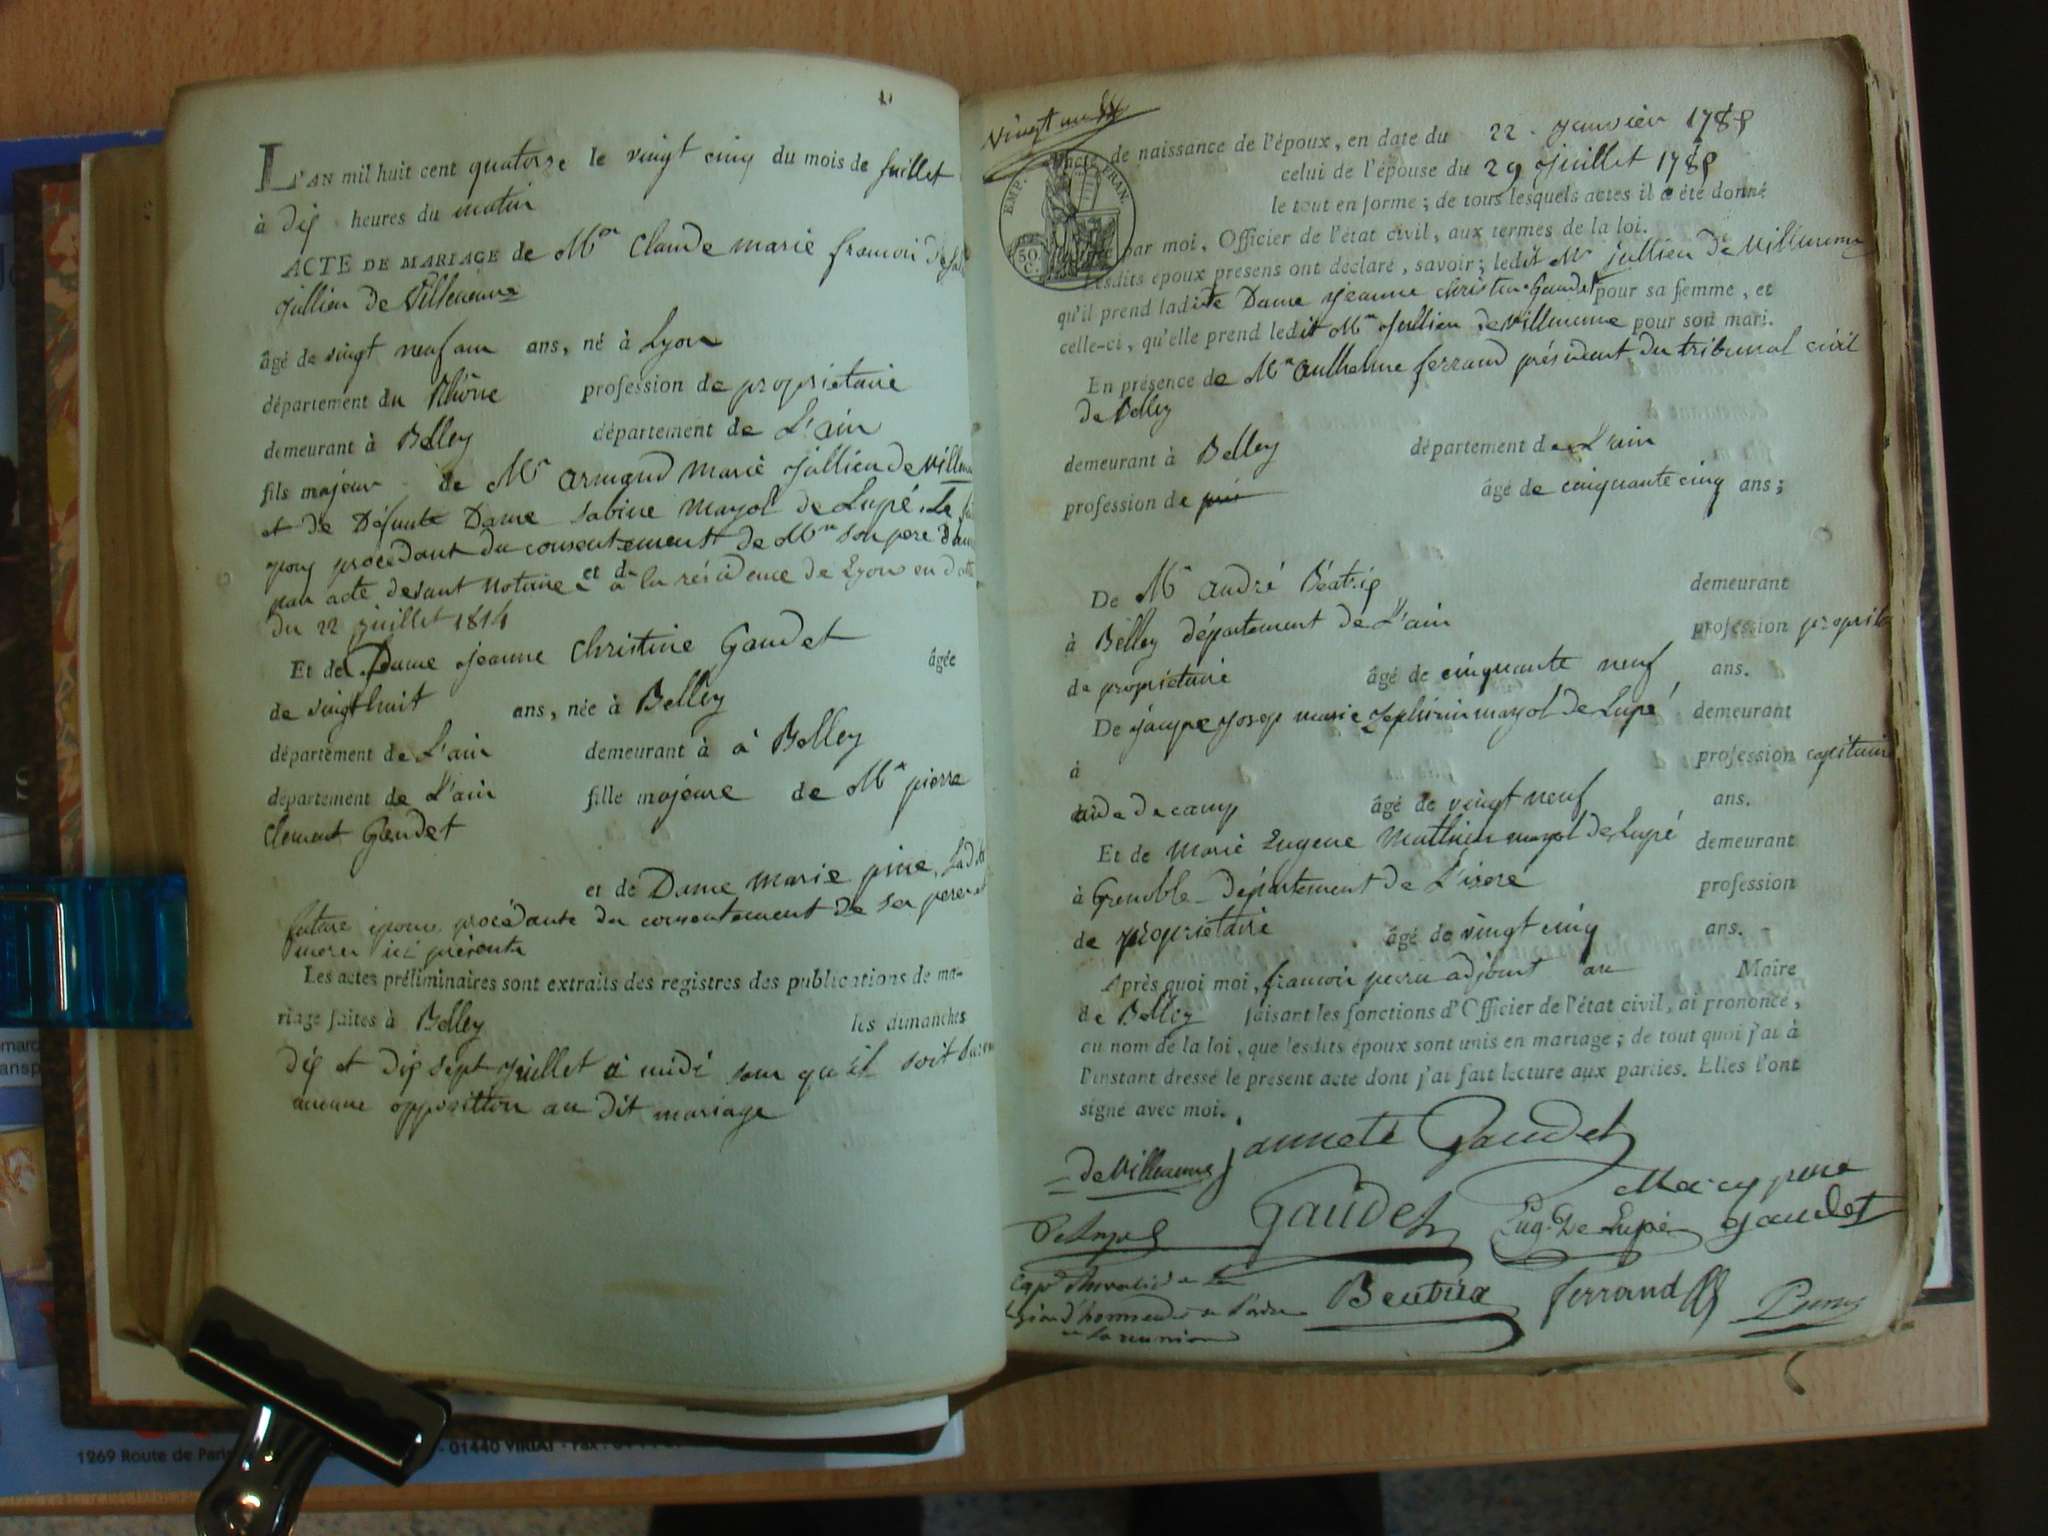 L'AN mil huit cent quatorze le vingt cinq du mois de juillet
à dix heures du matin
ACTE DE MARIAGE de Mr Claude marie francois
jullien de Villeneuve
âgé de vingt neuf ans ans, né à Lyon
département du Rhône profession de propriétaire
demeurant à Belley département de L'ain
fils majeur de Mr armand marie jullien de
et de Défunte Dame Sabine mayol de Lupé, Le
procédant du consentement de Mr son pere
par acte devant notaire et à la résidence de Lyon en
du 22 juillet 1814
Et de Dame jeanne christine Gaudet âgée
de vingt huit ans, née à Belley
département de L'ain demeurant à à Belley
département de L'ain fille majeure de Mr pierre
clement Gaudet
et de Dame marie pine,
future épouse procédante du consentement de ses pere et
mere ici présents
Les actes préliminaires sont extraits des registres des publications de ma-
riage faites à Belley les dimanches
dix et dix sept juillet à midi sans qu'il soit
aucune opposition au dit mariage
Vingt un
EMP. FRAN.
50. C.
de naissance de l'époux, en date du 22 janvier 1785
celui de l'épouse du 29 juillet 1785
le tout en forme; de tous lesquels actes il a été donné
par moi, Officier de l'état civil, aux termes de la loi.
Lesdits époux présens ont déclaré, savoir; ledit Mr jullien de Villeneuve
qu'il prend ladite Dame jeanne christine Gaudet pour sa femme, et
celle-ci, qu'elle prend ledit Mr jullien de villeneuve pour son mari.
En présence de Mr anthelme ferrand président du tribunal civil
de Belley
demeurant à Belley département de L'ain
profession de âgé de cinquante cinq ans;
De Mr andré Béatrix demeurant
à Belley département de L'ain profession
de propriétaire âgé de cinquante neuf ans.
De jacque joseph marie zephirin mayol de Lupé demeurant
à profession capitaine
aide de camp âgé de vingt neuf ans.
Et de marie Eugene Mathieu mayol de Lupé demeurant
à Grenoble département de L'isere profession
de propriétaire âgé de vingt cinq ans.
Après quoi moi, francois adjoint au Maire
de Belley faisant les fonctions d'Officier de l'état civil, ai prononcé,
au nom de la loi, que lesdits époux sont unis en mariage; de tout quoi j'ai à
l'instant dressé le présent acte dont j'ai fait lecture aux parties. Elles l'ont
signé avec moi.
de Villeneuve jannete Gaudet
Gaudet Eug. De Lupé pine gaudet
Beatrix ferrand
1269 Route de Paris - 01440 VIRIAT